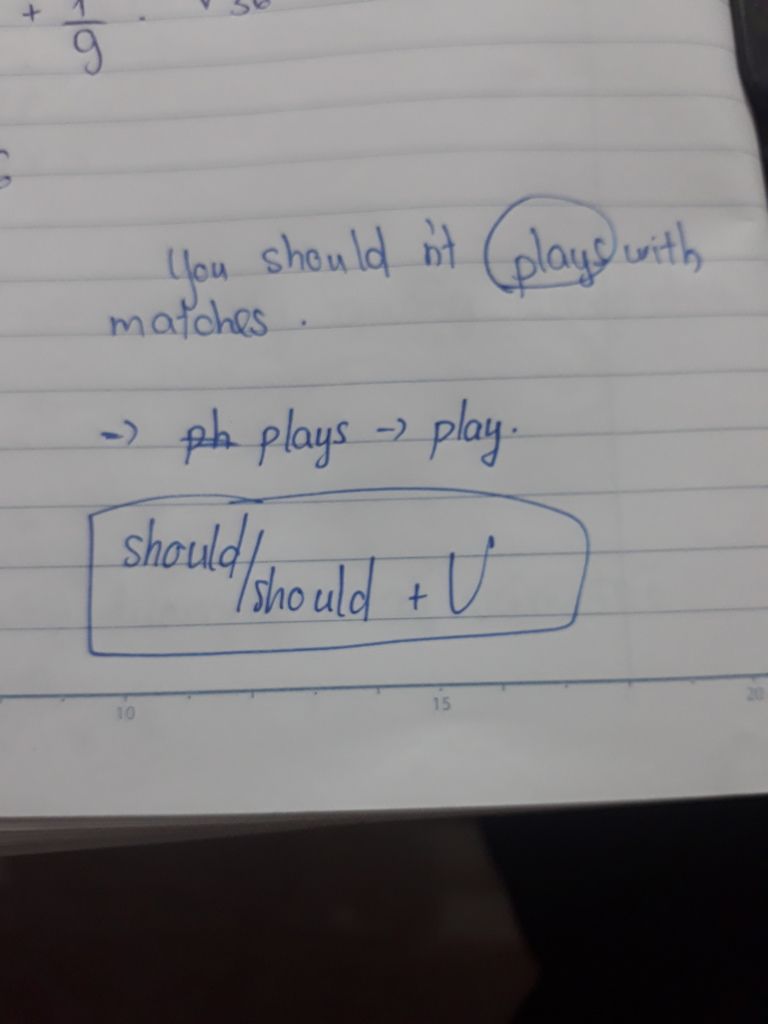 + 1/9 .
You should n't plays with
matches .
-> plays -> play.
should/should + V
10 15 20